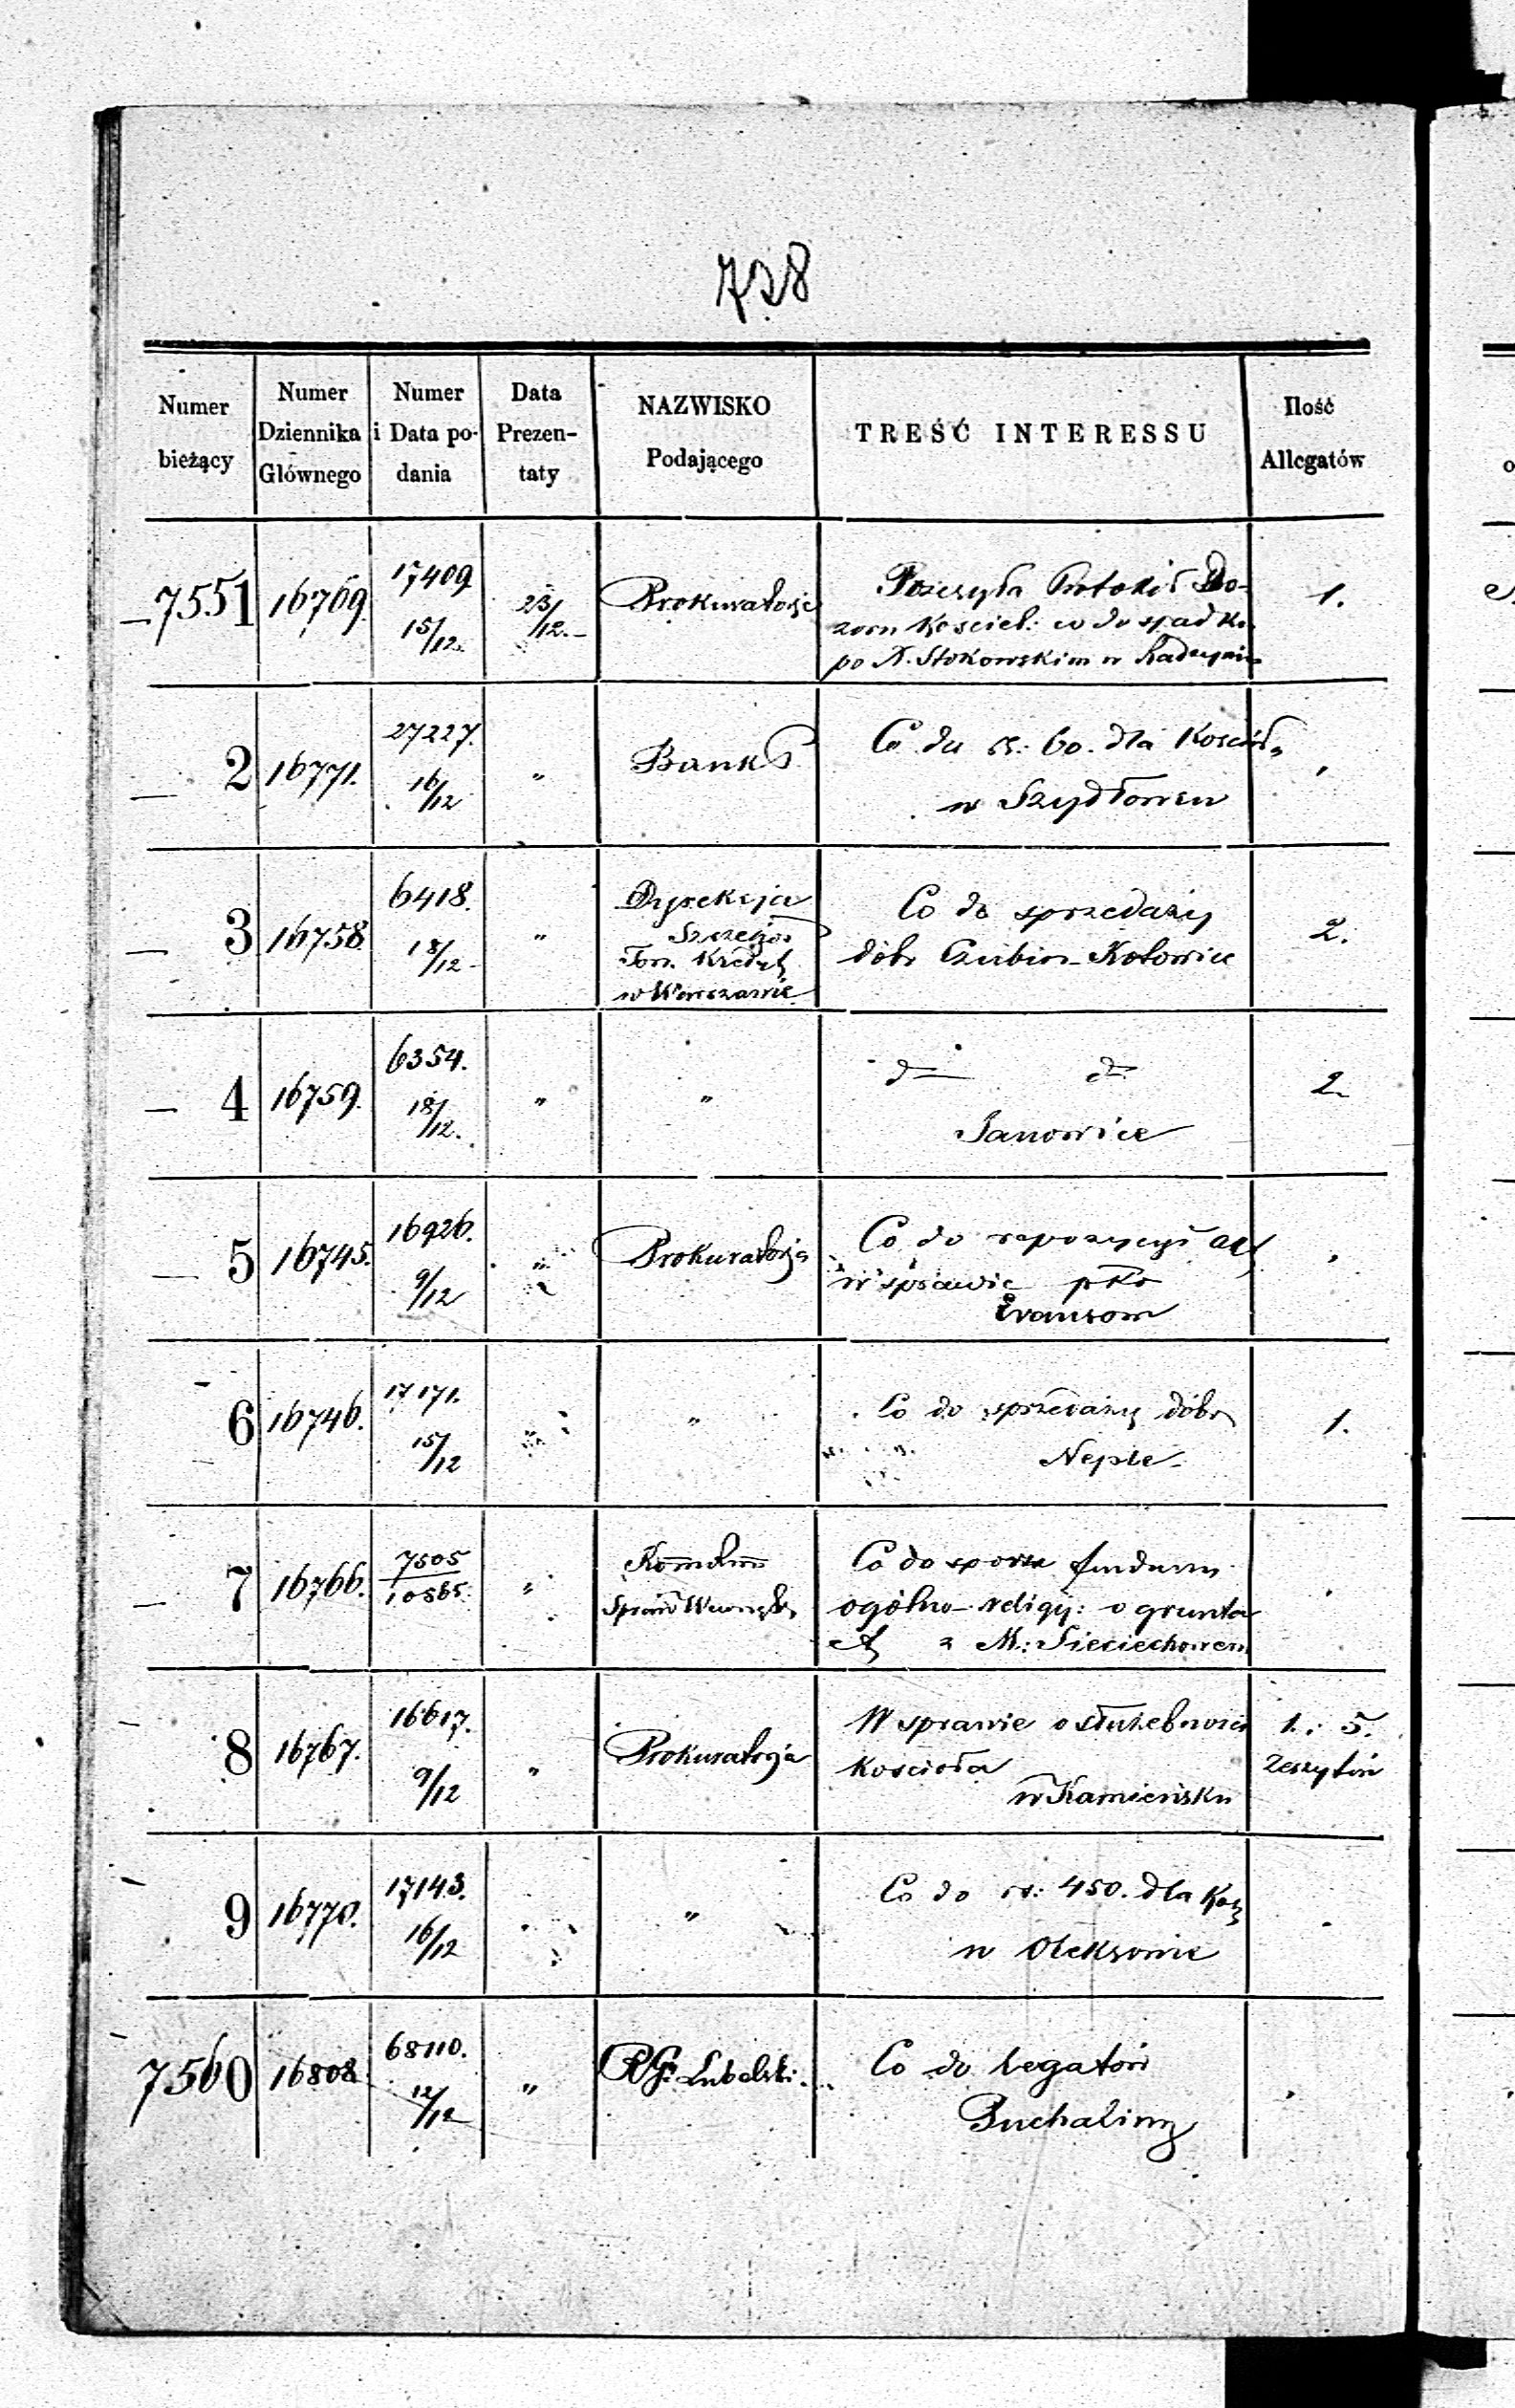 728
Numer bieżący
Numer Dziennika Głównego
Numer i Data podania
Data Prezentaty
NAZWISKO Podającego
TREŚĆ INTERESSU
Ilość Allegatów
7551 16769. 17409 15/12. 23/12. Prokuratorja Przesyła Protokół Do-
zoru Kościel: co do spadku
po X. Stokowskim w 1.
2 16771. 27227. 16/12 " Bank P. Co do rs: 60. dla Kościoła
w Szydłowcu
3 16758 6418. 18/12 " Dyrekcja
Szczegół
Tow. Kredyt
w Warszawie
Co do sprzedaży
dóbr Czubin-Kotowice 2.
4 16759. 6354. 18/12. " " do do 2.
Janowice
5 16745. 16926. 9/12 " Prokuratorja Co do repozycyi akt
w sprawie pko
Evansom
6 16746. 17171. 15/12 " " Co do sprzedaży dóbr 1.
Neple.
7 16766. 7505/10565. "
Spraw Wewnętr
Co do sporu funduszu
ogólno-religij: o grunta
z M: Sieciechowem
8 16767. 16617. 9/12 " Prokuratorja W sprawie o służebności 1. : 5.
Kościoła Zeszytów
w Kamieńsku
9 16770. 17143. 16/12 " Co do rs: 450. dla
w Oleksowie
7560 16808 68110. 12/12 " RG: Lubelski. Co do legatów
Puchaliny